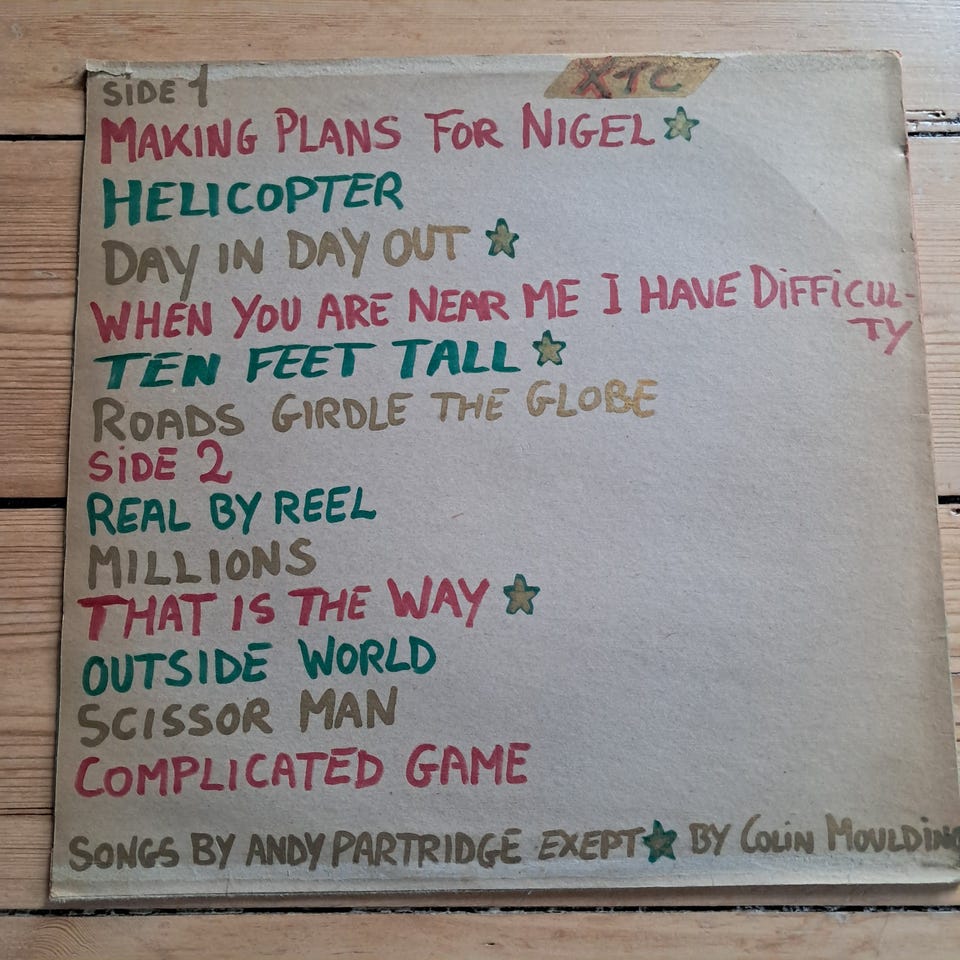 XTC
SIDE 1
MAKING PLANS FOR NIGEL ★
HELICOPTER
DAY IN DAY OUT ★
WHEN YOU ARE NEAR ME I HAVE DIFFICUL-
TY
TEN FEET TALL ★
ROADS GIRDLE THE GLOBE
SIDE 2
REAL BY REEL
MILLIONS
THAT IS THE WAY ★
OUTSIDE WORLD
SCISSOR MAN
COMPLICATED GAME
SONGS BY ANDY PARTRIDGE EXEPT ★ BY COLIN MOULDING